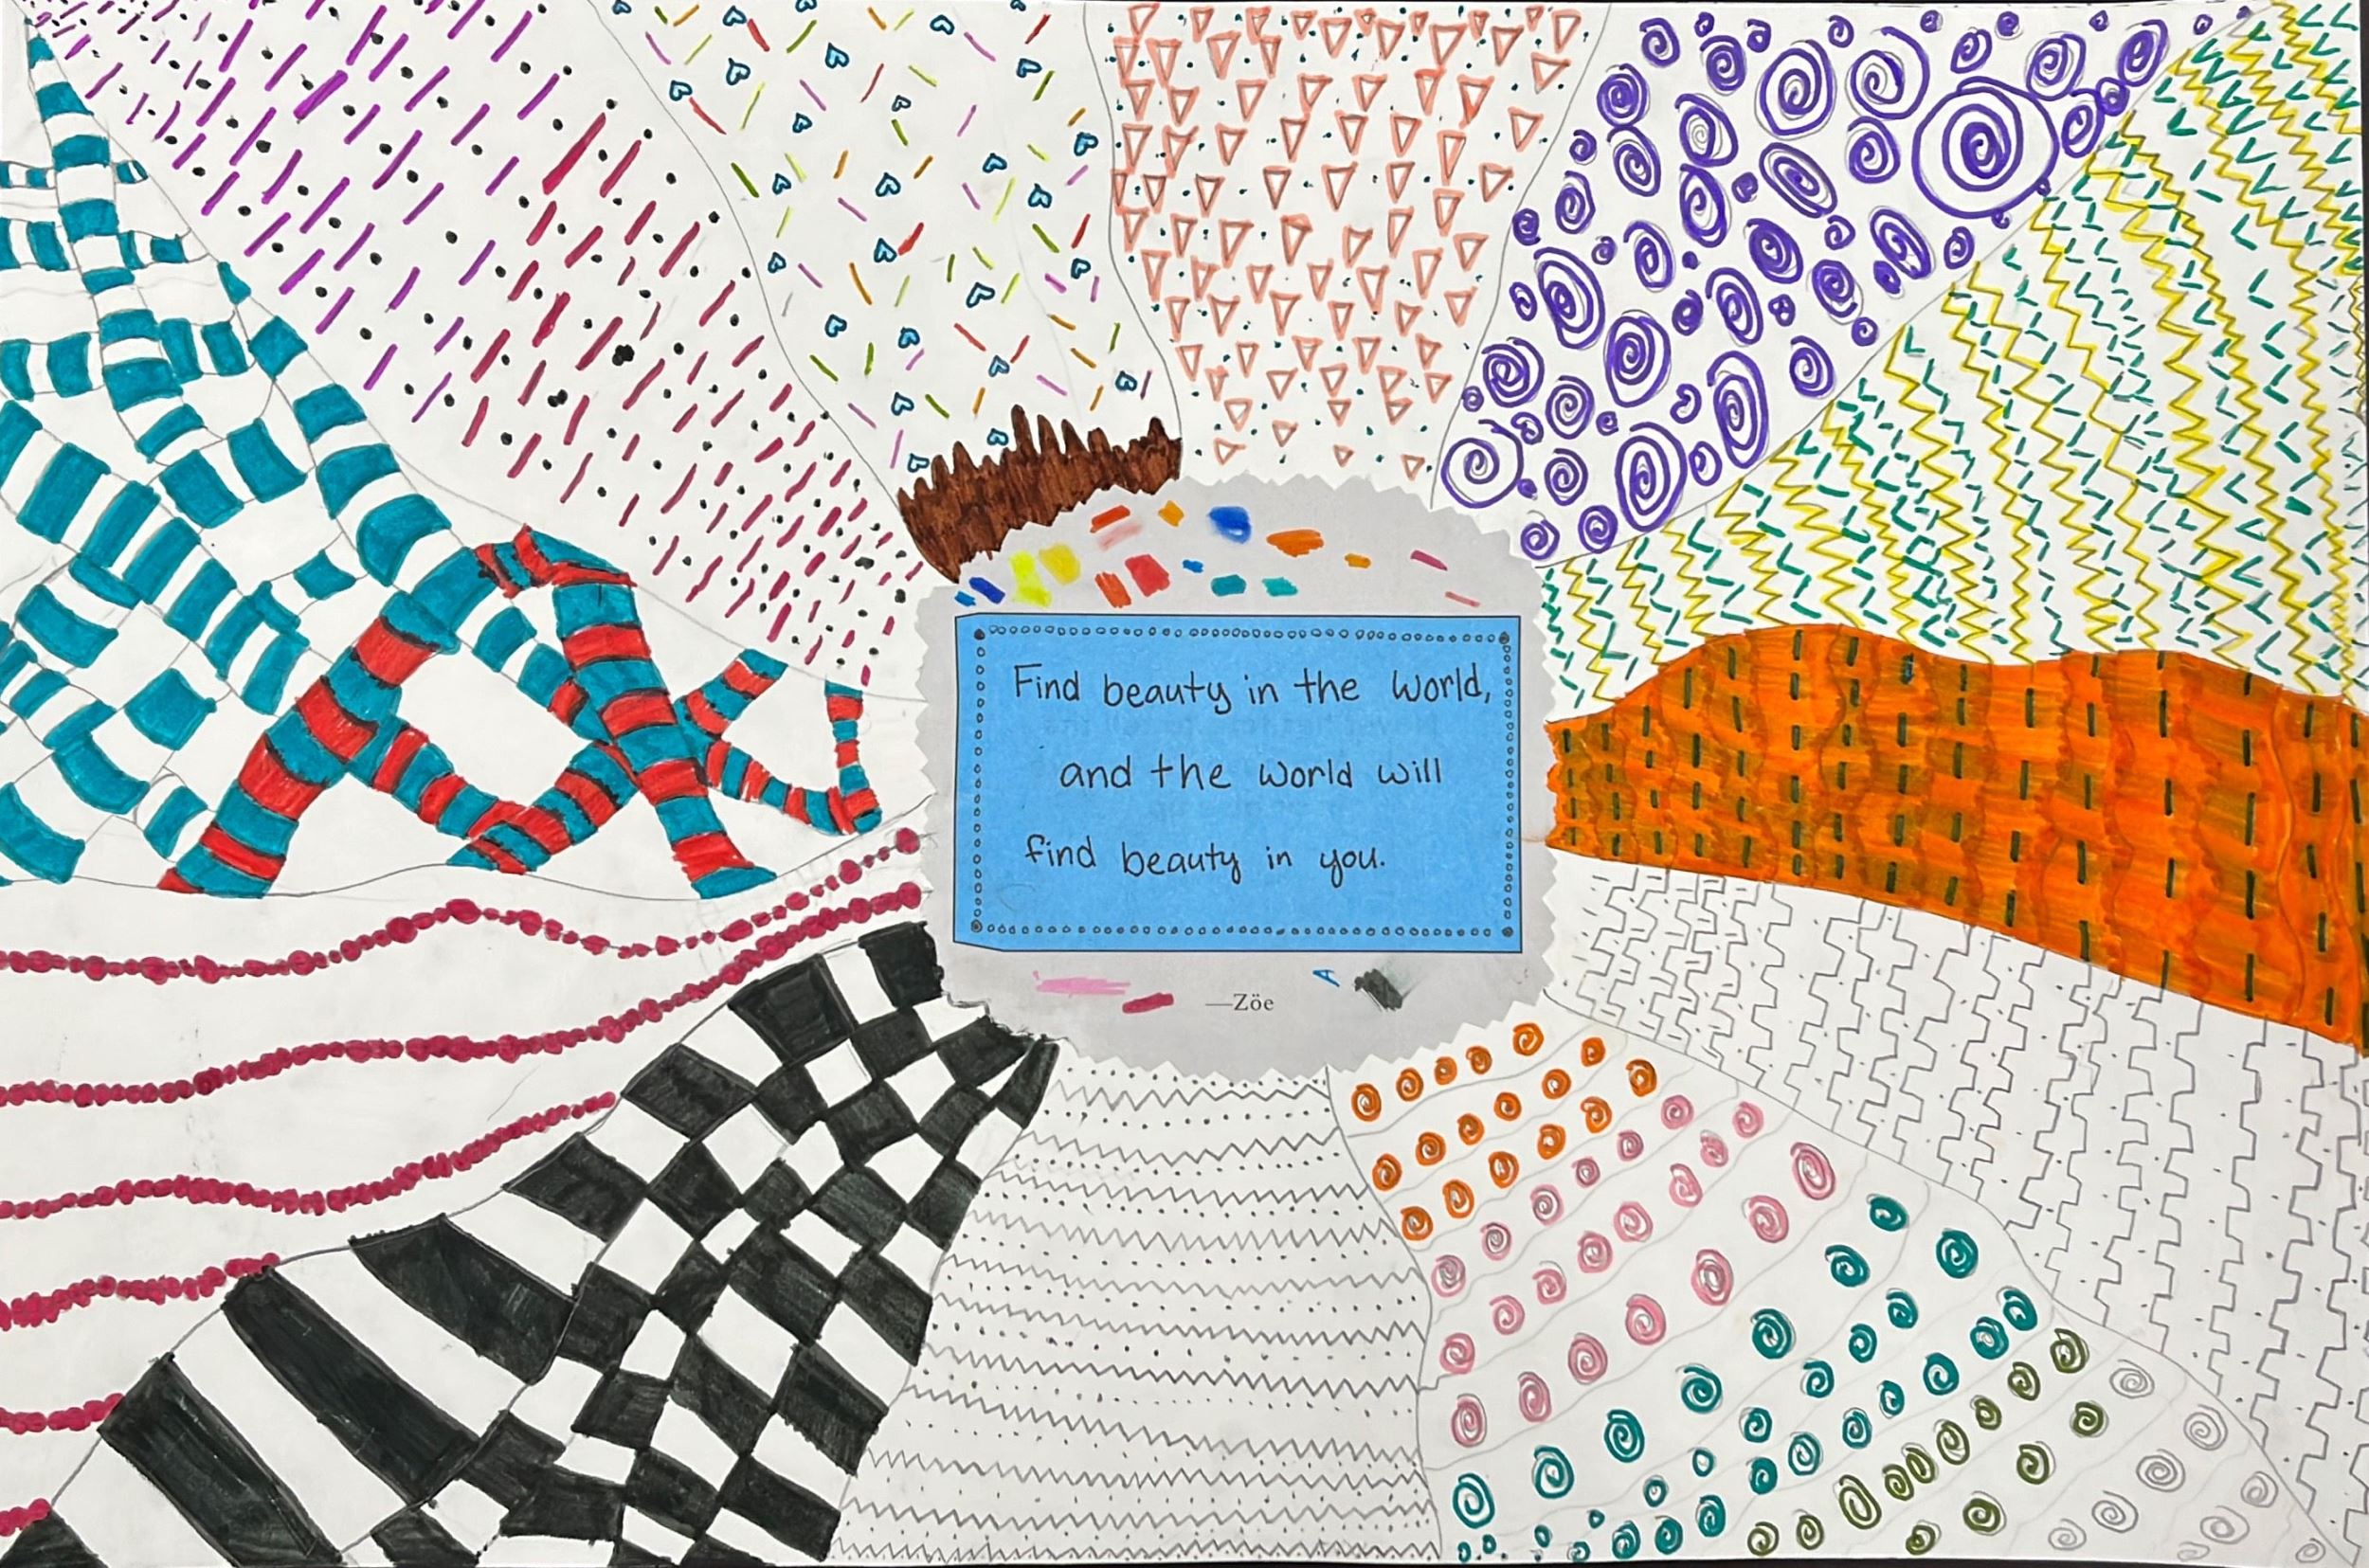 Find beauty in the world,
and the world will
find beauty in you.
—Zöe